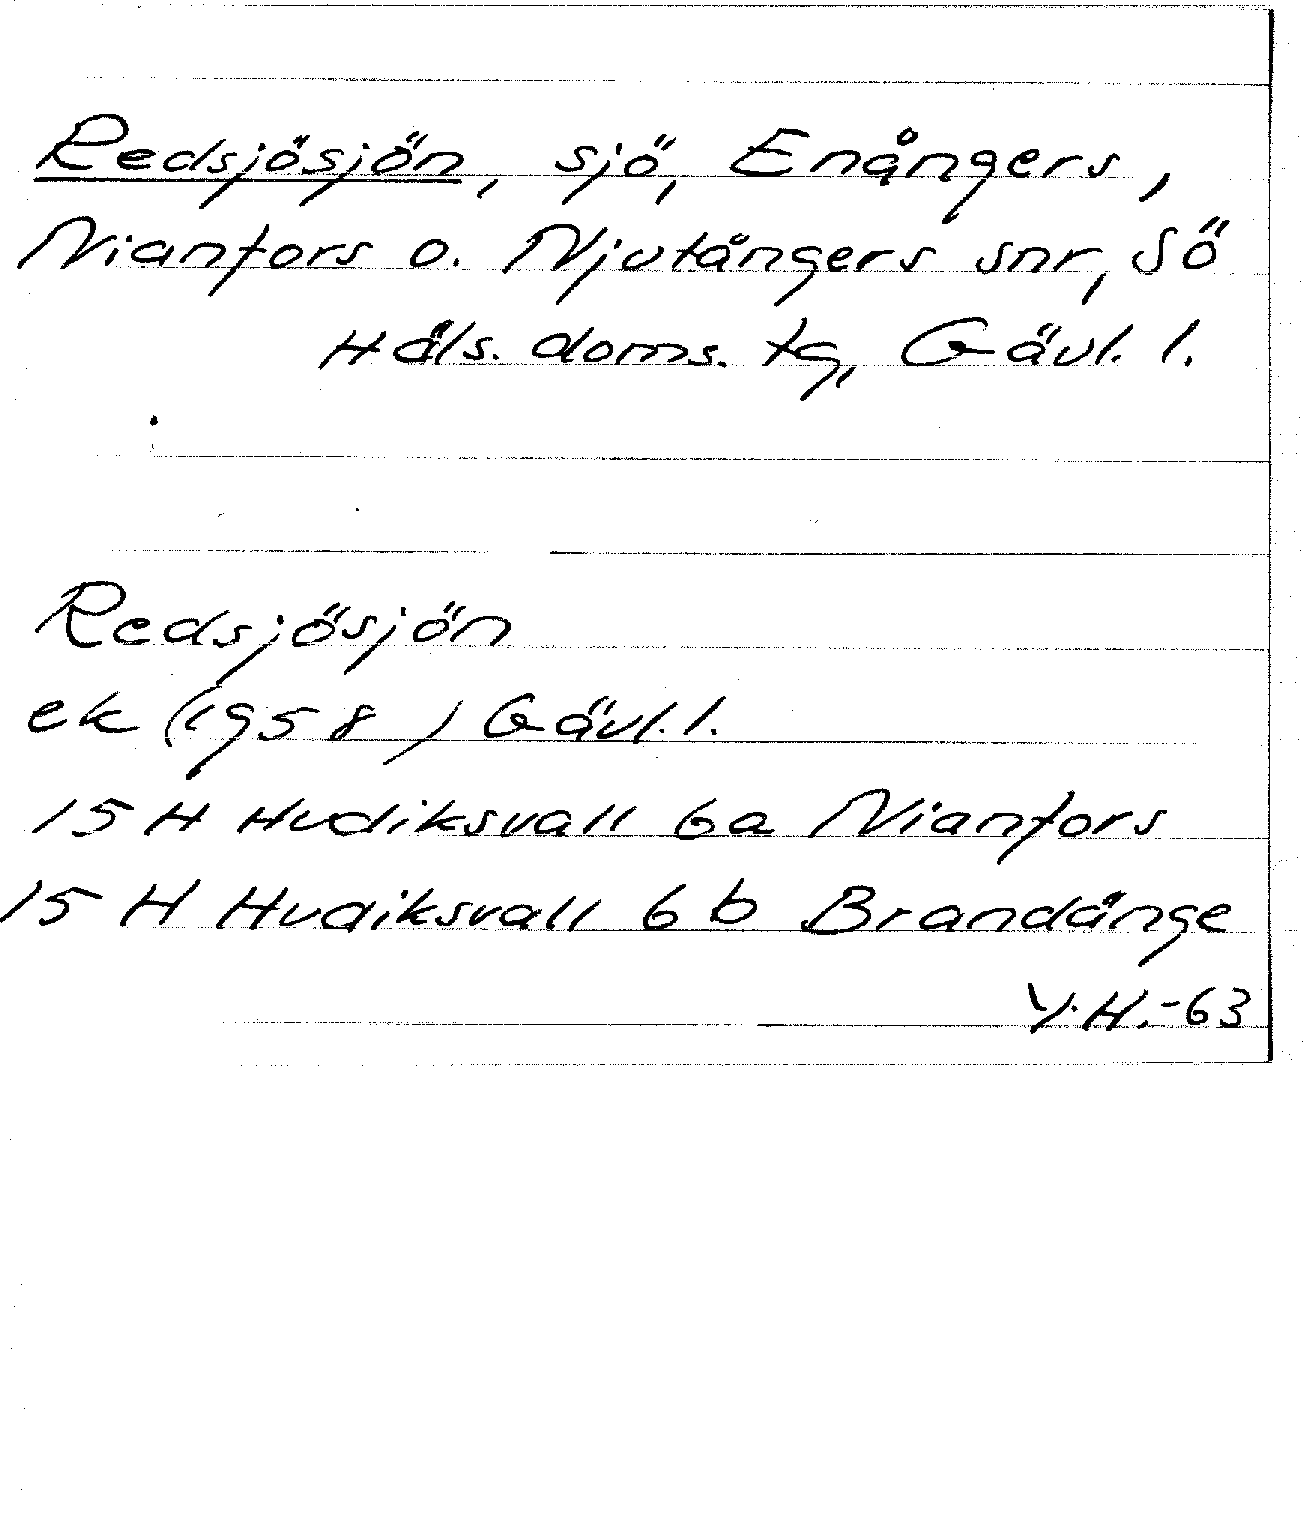 Redsjösjön, sjö, Enångers,
Nianfors o. Njutångers snr, Sö
Häls. doms. tg, Gävl. l.
Redsjösjön
ek (1958) Gävl. l.
15 H Hudiksvall 6a Nianfors
15 H Hudiksvall 6b Brandänge
Y.H.-63